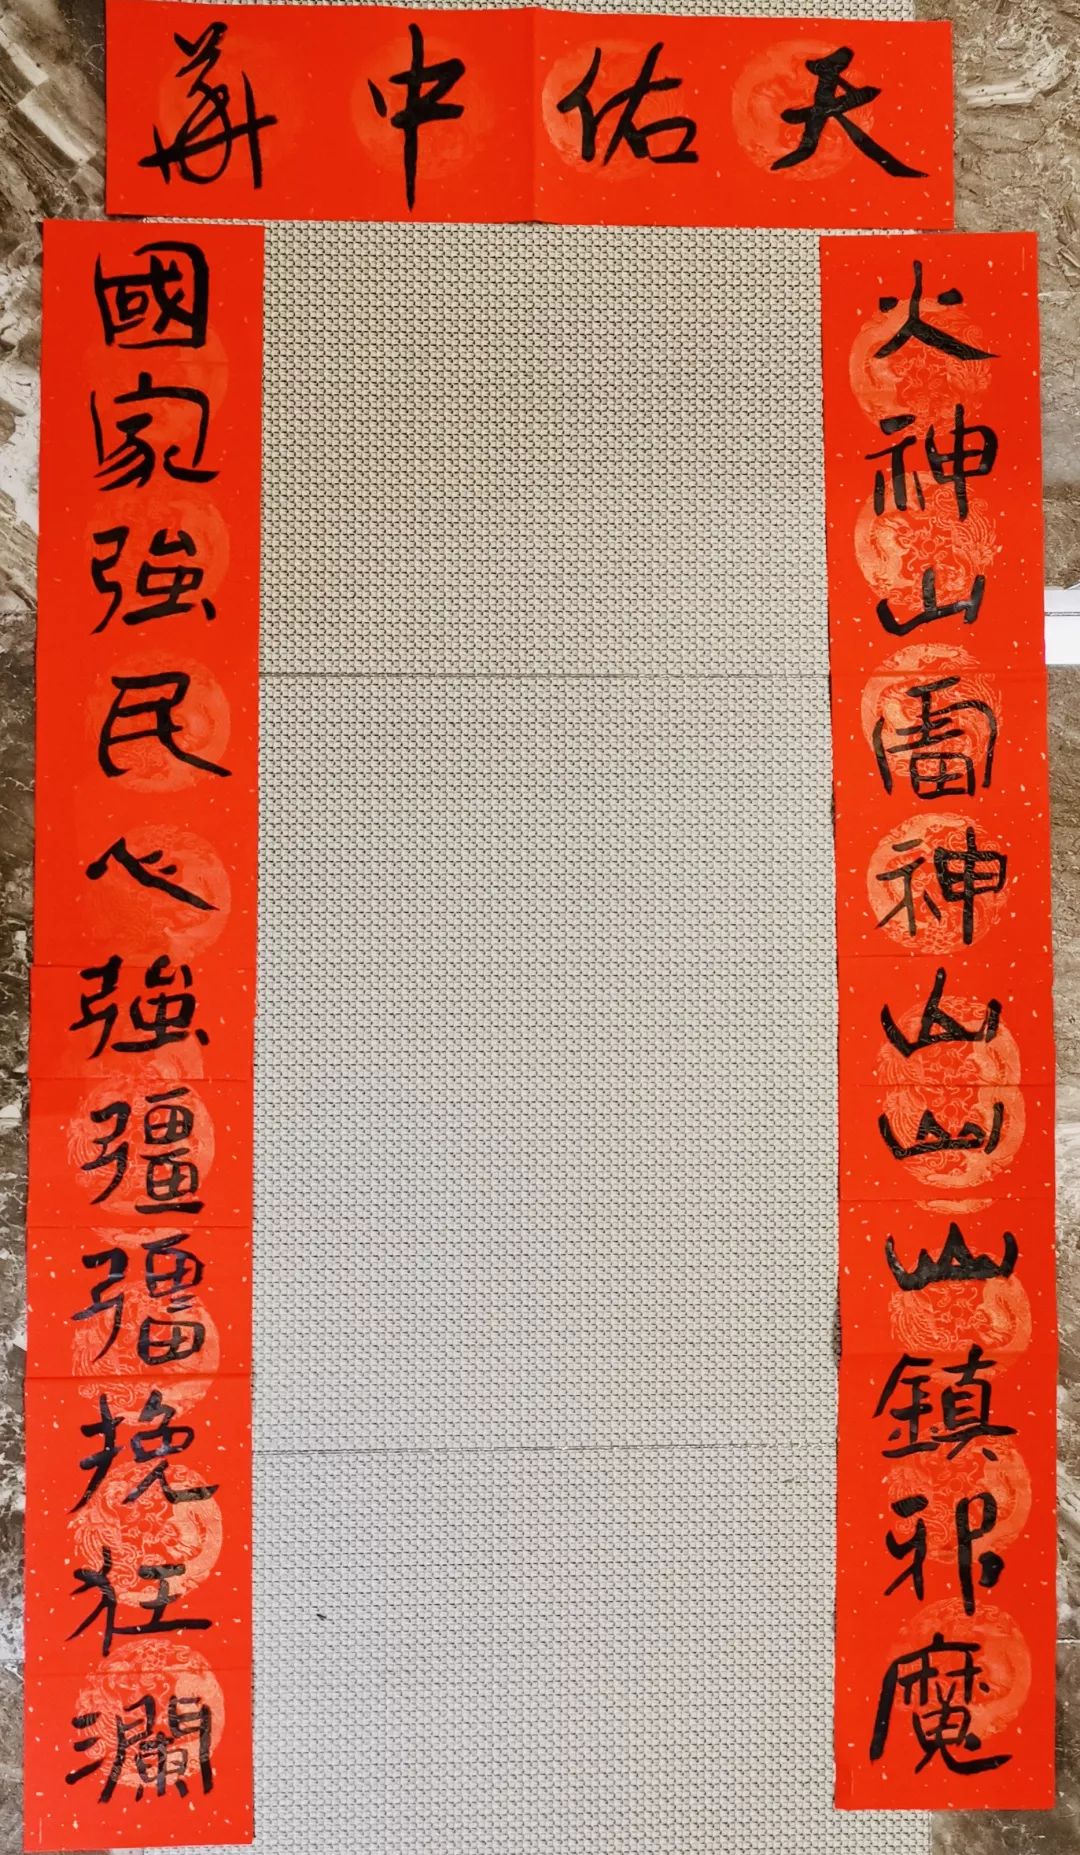 天佑中華
火神山雷神山山山鎮邪魔
國家強民心強彊彊挽狂瀾